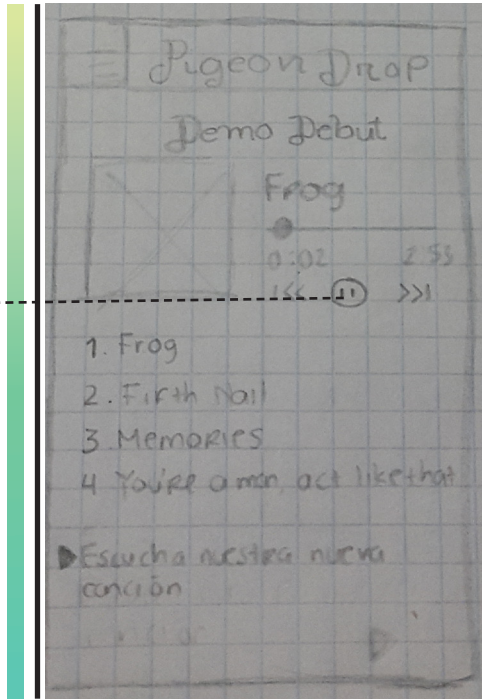 Pigeon Drop
Demo Debut
Frog
0:02 2:53
1. Frog
2. Firth Nail
3. Memories
4 You're a man, act like that
Escucha nuestra nueva
canción